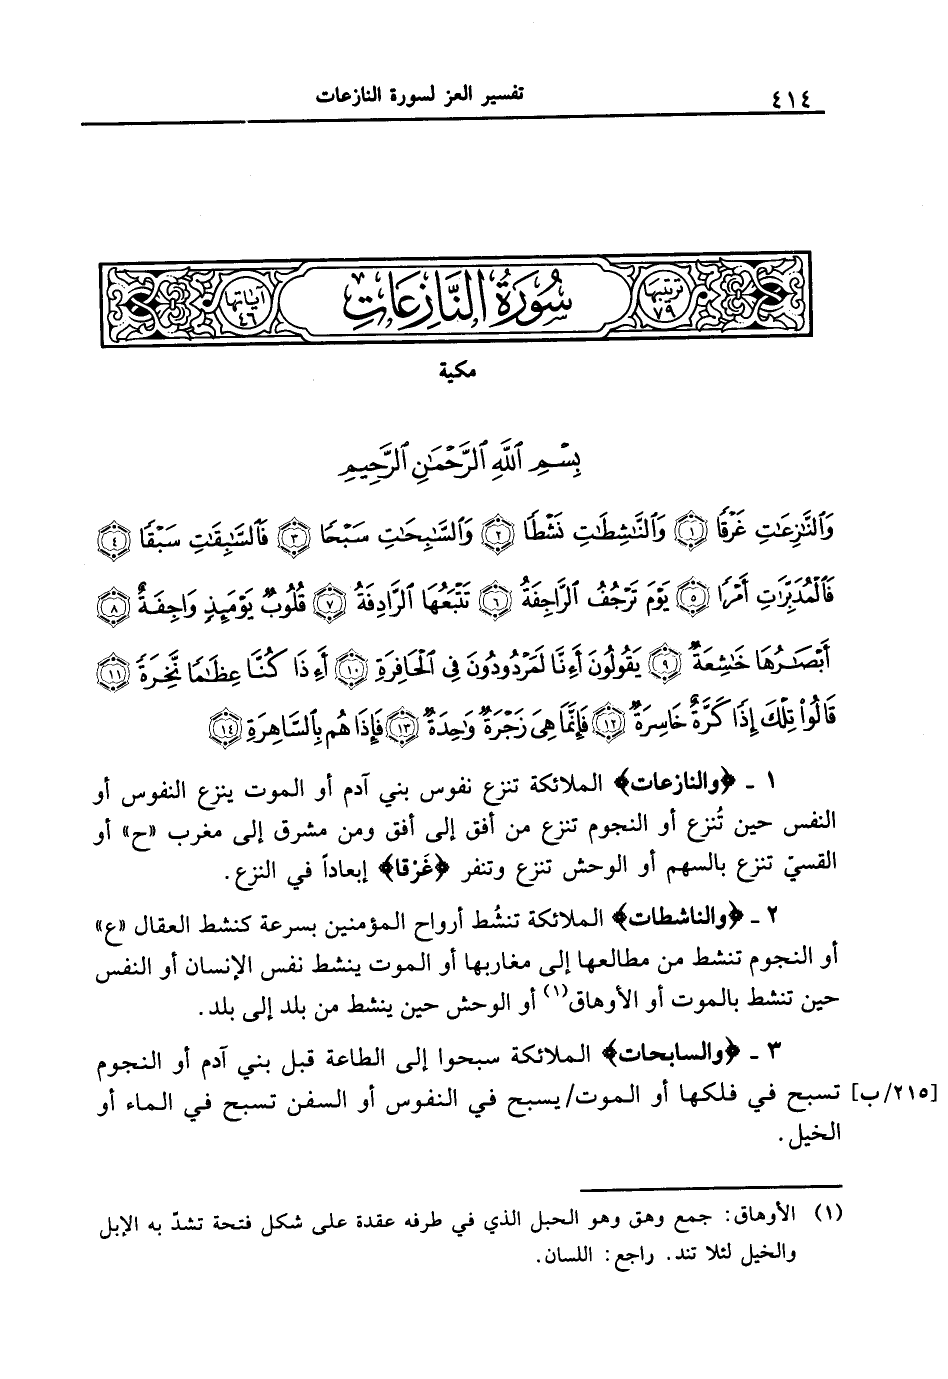 ٤١٤
تفسير العز لسورة النازعات
ترتيبها ٧٩
سُورَةُ النَّازِعَاتِ
آياتها ٤٦
مكية
بِسْمِ ٱللَّهِ ٱلرَّحْمَٰنِ ٱلرَّحِيمِ
وَٱلنَّٰزِعَٰتِ غَرْقًا ١ وَٱلنَّٰشِطَٰتِ نَشْطًا ٢ وَٱلسَّٰبِحَٰتِ سَبْحًا ٣ فَٱلسَّٰبِقَٰتِ سَبْقًا ٤
فَٱلْمُدَبِّرَٰتِ أَمْرًا ٥ يَوْمَ تَرْجُفُ ٱلرَّاجِفَةُ ٦ تَتْبَعُهَا ٱلرَّادِفَةُ ٧ قُلُوبٌ يَوْمَئِذٍ وَاجِفَةٌ ٨
أَبْصَٰرُهَا خَٰشِعَةٌ ٩ يَقُولُونَ أَءِنَّا لَمَرْدُودُونَ فِى ٱلْحَافِرَةِ ١٠ أَءِذَا كُنَّا عِظَٰمًا نَّخِرَةً ١١
قَالُوا۟ تِلْكَ إِذًا كَرَّةٌ خَاسِرَةٌ ١٢ فَإِنَّمَا هِىَ زَجْرَةٌ وَٰحِدَةٌ ١٣ فَإِذَا هُم بِٱلسَّاهِرَةِ ١٤
١ ـ ﴿والنازعات﴾ الملائكة تنزع نفوس بني آدم أو الموت ينزع النفوس أو
النفس حين تُنزع أو النجوم تنزع من أفق إلى أفق ومن مشرق إلى مغرب «ح» أو
القسيّ تنزع بالسهم أو الوحش تنزع وتنفر ﴿غَرْقا﴾ إبعاداً في النزع.
٢ ـ ﴿والناشطات﴾ الملائكة تنشُط أرواح المؤمنين بسرعة كنشط العقال «ع»
أو النجوم تنشط من مطالعها إلى مغاربها أو الموت ينشط نفس الإنسان أو النفس
حين تنشط بالموت أو الأوهاق(١) أو الوحش حين ينشط من بلد إلى بلد.
٣ ـ ﴿والسابحات﴾ الملائكة سبحوا إلى الطاعة قبل بني آدم أو النجوم
[٢١٥/ب] تسبح في فلكها أو الموت/يسبح في النفوس أو السفن تسبح في الماء أو
الخيل.
(١) الأوهاق: جمع وهق وهو الحبل الذي في طرفه عقدة على شكل فتحة تشدّ به الإبل
والخيل لئلا تند. راجع: اللسان.